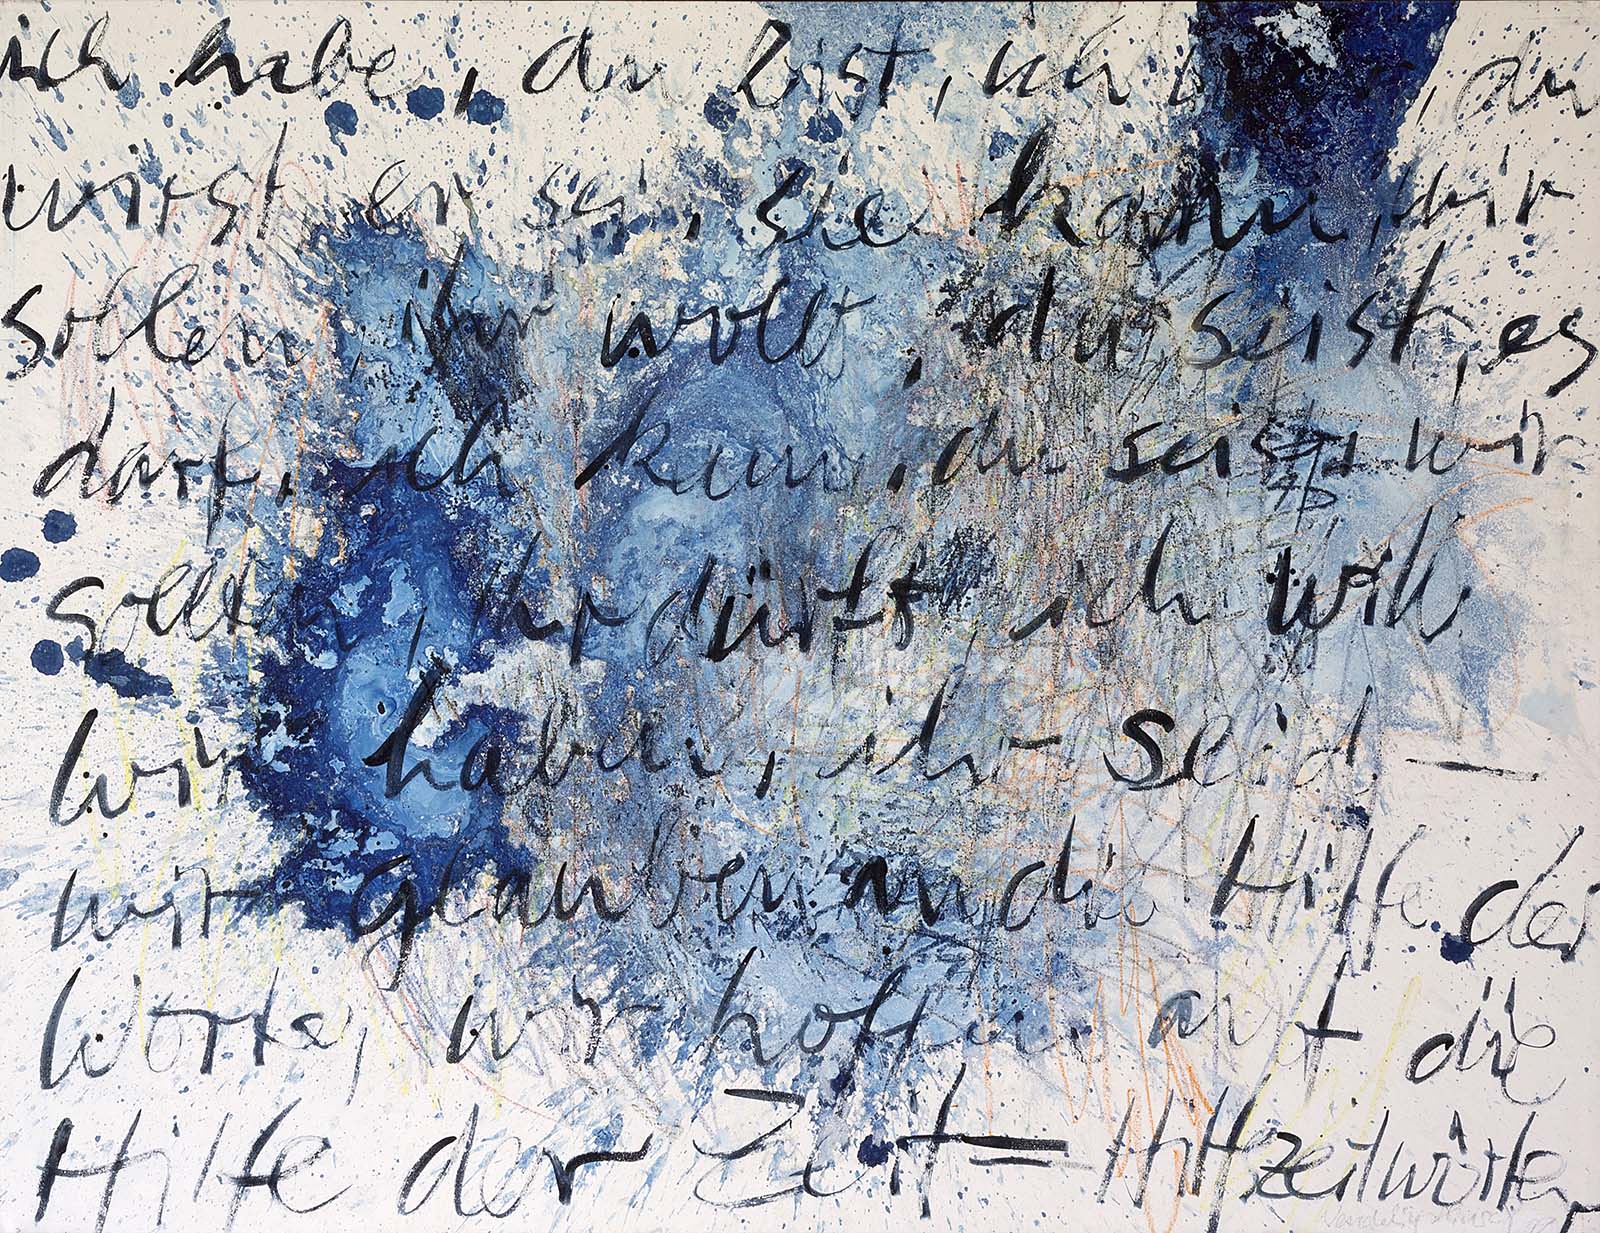 ich habe, du bist, ich, du
wirst er sei, sie kann, wir
sollen, ihr wollt, du seist, es
darf, ich kann, du seist, wir
sollen, ihr dürft, ich will
wir haben, ihr seid –
wir glauben an die Hilfe der
Worte, wir hoffen auf die
Hilfe der Zeit = Hilfszeitwörter